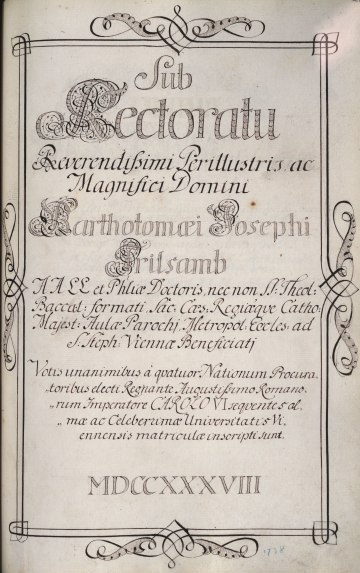 Sub
Rectoratu
Reverendissimi Perillustris ac
Magnifici Domini
Barthotomæi Josephi
Trilsamb
AA LL et Phliæ Doctoris, nec non SS: Theol:
Baccal: formati Sac: Cæs: Regiæque Catho:
Majest: Aulæ Parochi, Metropol: Eccles: ad
S. Steph: Viennæ Beneficiatj
Votis unanimibus à quatuor Nationum Procura-
„toribus electi Regnante Augustissimo Romano-
„rum Imperatore CAROLO VI sequentes al,
„mæ ac Celeberumæ Universitatis Vi,
ennensis matriculæ inscripti sunt.
MDCCXXXVIII